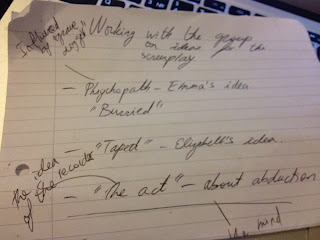 Influenced by
"Working with the group
on ideas for the
screenplay
— Phychopath – Emma's idea
"Burried"
— "Taped" – Elizabeth's idea.
the idea
of the recorder
— "The act" – about abduction
the mind